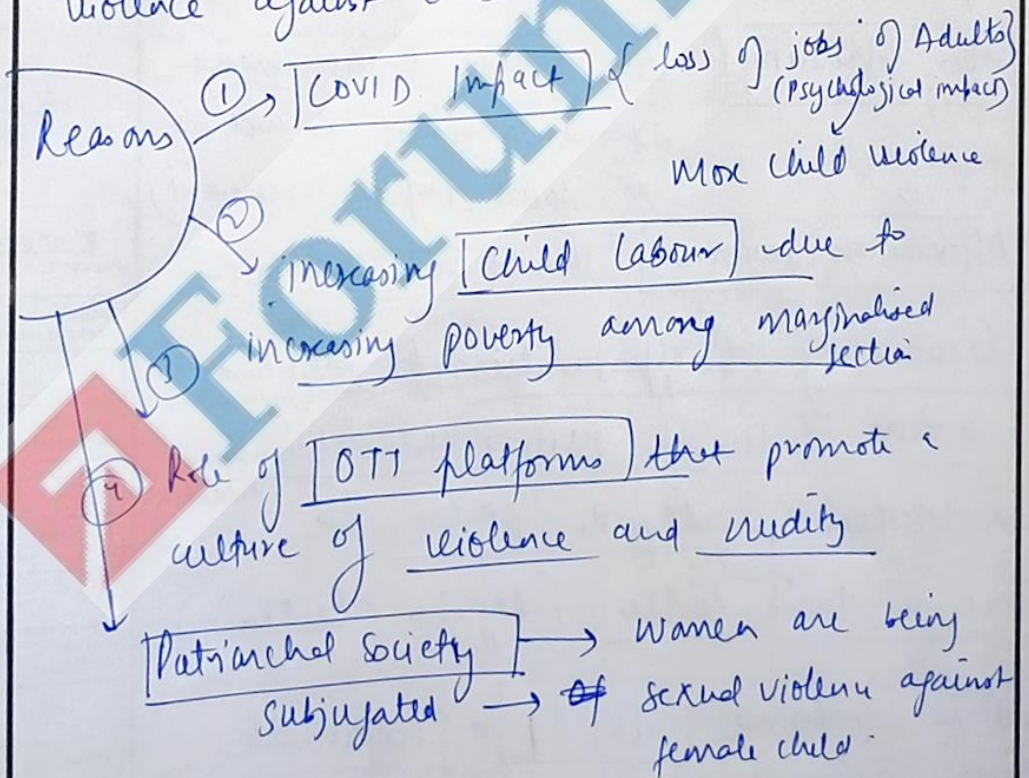 violence against
Reasons
① COVID Impact { loss of jobs of Adults}
(Psychological impact)
More Child violence
② increasing Child Labour due to
increasing poverty among marginalised
section
③
④ Role of OTT platforms that promote a
culture of violence and nudity
Patriarchal Society → Women are being
subjugated → sexual violence against
female child.
Forum